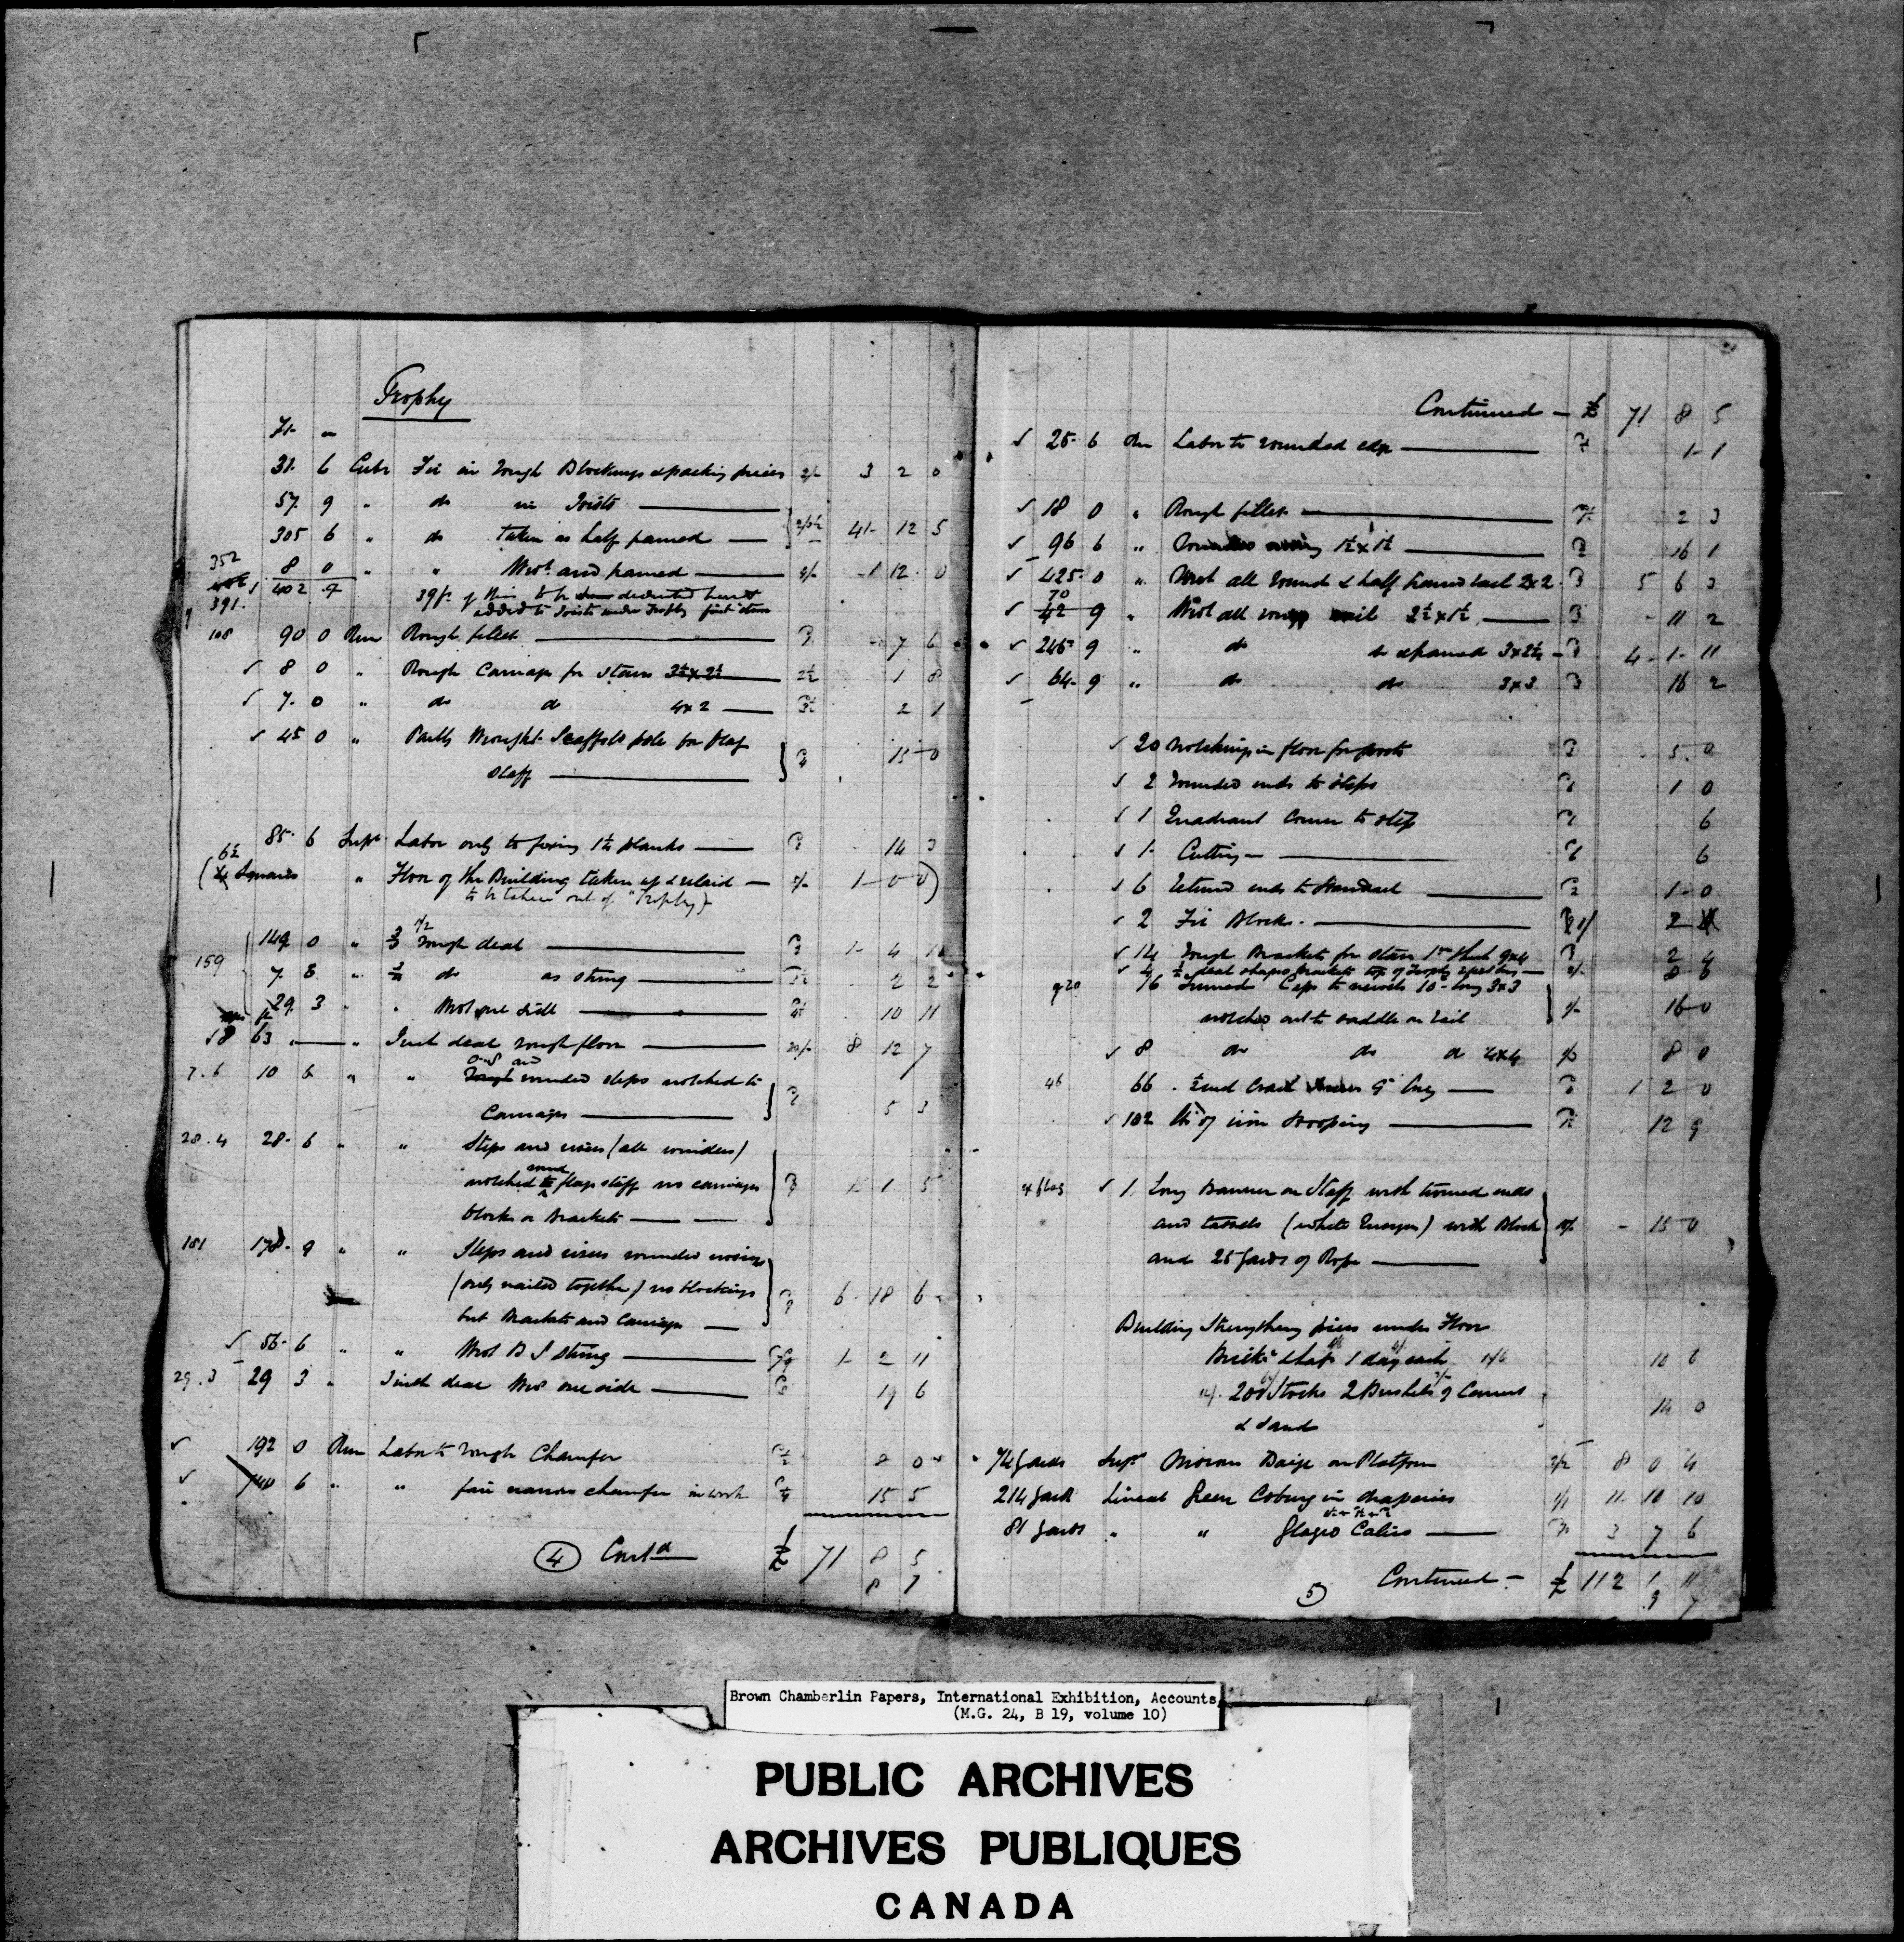 Trophy
71 "
31. 6 Cube Fir in rough Blockings & packing pieces 2/- 3 2 0
57. 9 " do in Joists
305 6 " do taken as half framed 41 12 5
352
8 0 " " Wrot and framed 4/- 1 12 0
402 9 39ft of this to be deducted
391. added to Joists under Trophy
108 90 0 Run Rough fillet 7 6
✓ 8 0 " Rough Carriage for stairs 3½ x 2½ 2½ 1 8
✓ 7. 0 " do do 4x2 2 1
✓ 45 0 " Partly Wrought Scaffold pole for flag
Staff 15 0
85. 6 Supl Labor only to fixing 1½ planks 14 3
6½
(4 Squares " Floor of the Building taken up & relaid 5/- 1 0 0)
to be taken out of "Trophy"
149 0 " rough deal 1 4 10
159
7 8 " do as string 2 2
29. 3 " " Wrot one side 10 11
18 63 " Inch deal rough floor 8 12 7
and
7.6 10 6 " " rounded steps notched to
Carriages 5 3
28.4 28. 6 " " Steps and risers (all winders)
round
notched to flag staff no carriages 1 1 5
blocks or brackets
151 178. 9 " " Steps and risers rounded nosings
(only nailed together) no blockings 6 18 6
but Brackets and Carriage
✓ 56. 6 " " Wrot B S string 1 2 11
29.3 29 3 " 3 inch deal Wrot one side 19 6
✓ 192 0 Run Labor to rough Chamfer 8 0
✓ 740 6 " " fair narrow chamfer in work 15 5
4 Contd £ 71 8 5
8 7
Continued £ 71 8 5
✓ 25. 6 Run Labor to rounded edge 1 1
✓ 18 0 " Rough fillet 2 3
✓ 96 6 " Rounded nosing 1½ x 1½ 16 1
✓ 425. 0 " Wrot all round & half framed 2x2 5 6 3
70
✓ 42 9 " Wrot all round rail 2½ x 1½ 11 2
✓ 245 9 " do & framed 3x2½ 4 1 11
✓ 64. 9 " do do 3x3 16 2
✓ 20 Notchings in floor for posts 5. 0
✓ 2 rounded ends to steps 1 0
✓ 1 Quadrant Corner to step 6
✓ 1 Cutting 6
✓ 6 returned ends to Standard 1 0
✓ 2 Fir Blocks 2
✓ 14 Rough Brackets for stairs 1in thick 9x4 2 4
✓ 4 deal shaped brackets top of Trophy 2/- 8 0
16 Turned Caps to newels 10" long 3x3
notched out to saddle on rail 1/- 16 0
✓ 8 do do do 4x4 8 0
46 66 9" long 1 2 0
✓ 102 lbs of iron Hooping 12 9
✓ 1. Long Banner on Staff with turned ends
and tassels (white Ensign) with Block 15 0
and 25 yards of Rope
Building Strengthing piers under Floor
Brickr & labr 1 day each 10 6
200 Stocks 2 Bushels of Cement 14 0
& sand
74 yards Supl Baize on Platform 2/2 8 0 4
214 yards Lineal Green Coburg in draperies 1/1 11 10 10
81 yards " " Glazed Calico 3 7 6
5 Continued £ 112 1 11
9 7
Brown Chamberlin Papers, International Exhibition, Accounts,
(M.G. 24, B 19, volume 10)
PUBLIC ARCHIVES
ARCHIVES PUBLIQUES
CANADA